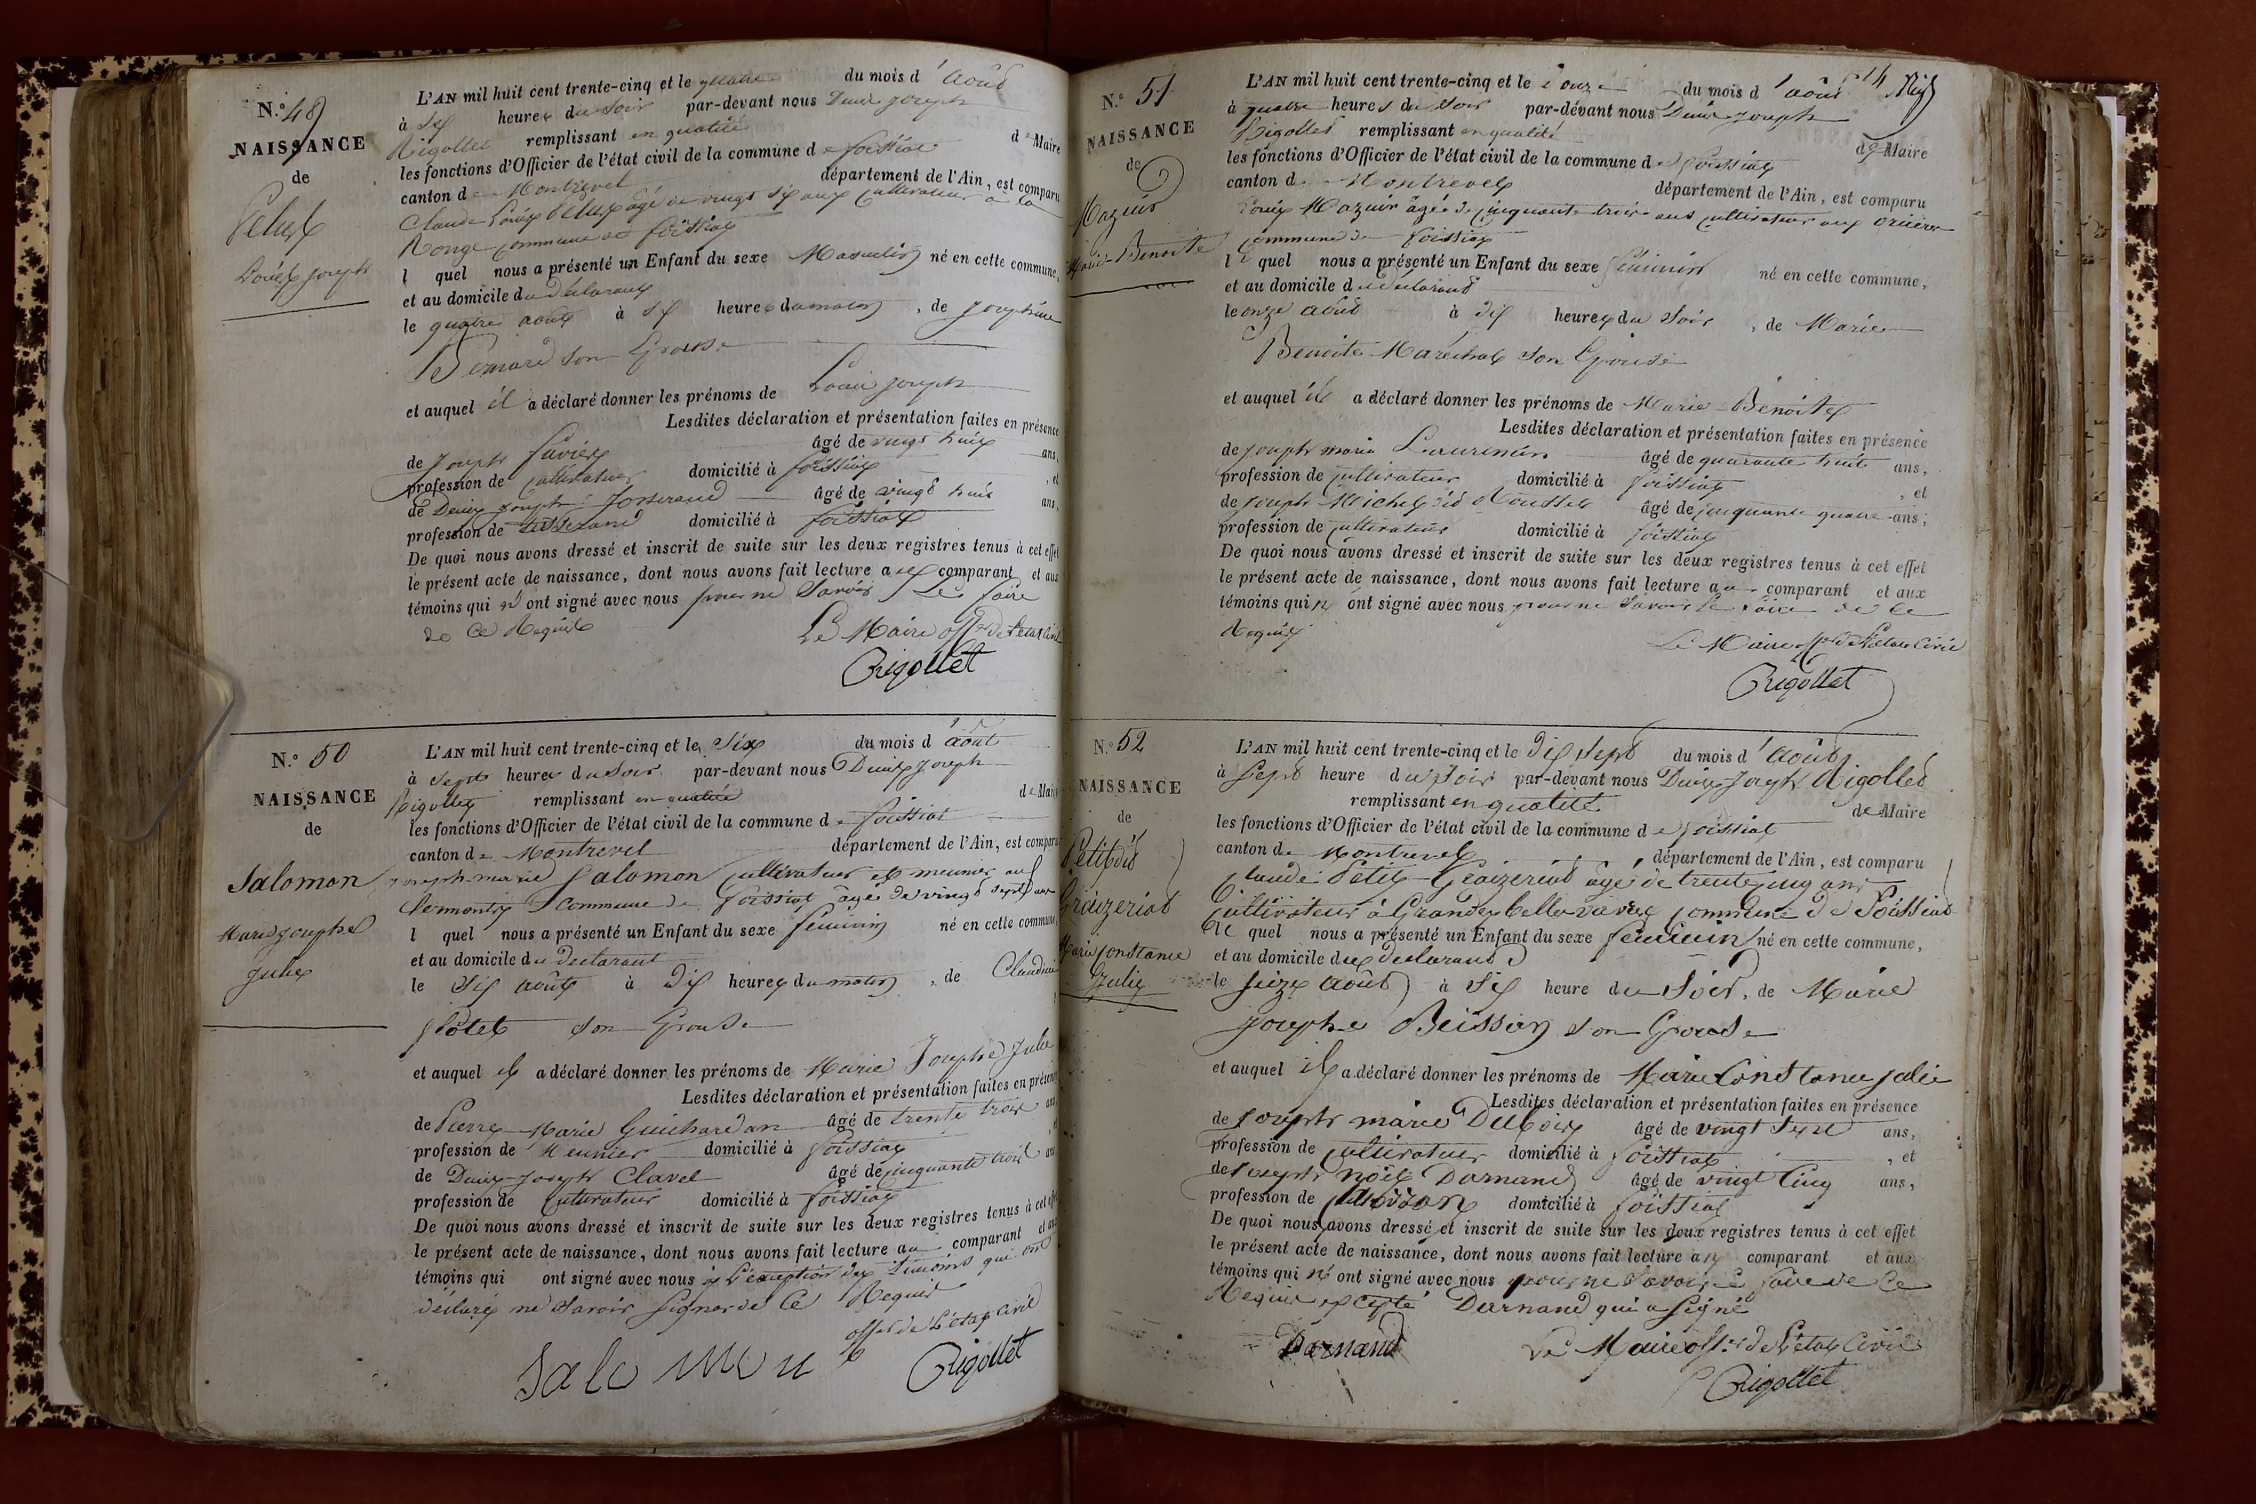 N.o 49
NAISSANCE
de
Louis Joseph
L'AN mil huit cent trente-cinq et le quatre du mois d'août
à six heures du soir par-devant nous Denis Joseph
Rigollet remplissant en qualité de Maire
les fonctions d'Officier de l'état civil de la commune de foissiat
canton de Montrevel département de l'Ain, est comparu
Claude Louis âgé de vingt six ans cultivateur à la
Ronge commune de foissiat
l quel nous a présenté un Enfant du sexe Masculin né en cette commune,
et au domicile du déclarant
le quatre août à six heures du matin, de Josephine
son Epouse
et auquel il a déclaré donner les prénoms de Louis joseph
Lesdites déclaration et présentation faites en présence
de Joseph âgé de vingt huit ans,
profession de cultivateur domicilié à foissiat, et
de Denis Joseph Josserand âgé de vingt huit ans,
profession de tisserand domicilié à foissiat
De quoi nous avons dressé et inscrit de suite sur les deux registres tenus à cet effet
le présent acte de naissance, dont nous avons fait lecture au comparant et aux
témoins qui n' ont signé avec nous pour ne Savoir Le faire
de ce Requis
Le Maire off.er de l'état Civil
Rigollet
N.o 50
NAISSANCE
de
Salomon
Marie josephe
julie
L'AN mil huit cent trente-cinq et le Six du mois d'août
à Sept heures du Soir par-devant nous Denis Joseph
Rigollet remplissant en qualité de Maire
les fonctions d'Officier de l'état civil de la commune de foissiat
canton de Montrevel département de l'Ain, est comparu
joseph-marie Salomon cultivateur et meunier au
commune de foissiat âgé de vingt sept ans
l quel nous a présenté un Enfant du sexe féminin né en cette commune,
et au domicile du déclarant
le Six août à Dix heures du matin, de Claudine
son Epouse
et auquel il a déclaré donner les prénoms de Marie Josephe Julie
Lesdites déclaration et présentation faites en présence
de Pierre Marie Guichardan âgé de trente trois ans,
profession de Meunier domicilié à foissiat
de Denis-Joseph Clavel âgé de cinquante trois ans
profession de cultivateur domicilié à foissiat
De quoi nous avons dressé et inscrit de suite sur les deux registres tenus à cet effet
le présent acte de naissance, dont nous avons fait lecture au comparant et aux
témoins qui ont signé avec nous à l'exception des Témoins qui ont
déclaré ne Savoir Signer de Ce Requis
off.er de L'état Civil
Salomon
Rigollet
14
N.o 51
NAISSANCE
de
Mazuir
Marie-Benoite
L'AN mil huit cent trente-cinq et le onze du mois d'août
à quatre heures du soir par-devant nous Denis Joseph
Rigollet remplissant en qualité de Maire
les fonctions d'Officier de l'état civil de la commune de foissiat
canton de Montrevel département de l'Ain, est comparu
Louis Mazuir âgé de cinquante trois ans cultivateur aux
commune de foissiat
le quel nous a présenté un Enfant du sexe féminin né en cette commune,
et au domicile du déclarant
le onze août à dix heures du Soir, de Marie
Benoite Maréchal son Epouse
et auquel il a déclaré donner les prénoms de Marie-Benoite
Lesdites déclaration et présentation faites en présence
de joseph marie âgé de quarante huit ans,
profession de cultivateur domicilié à foissiat, et
de joseph Michel dit Roussel âgé de cinquante quatre ans,
profession de cultivateur domicilié à foissiat
De quoi nous avons dressé et inscrit de suite sur les deux registres tenus à cet effet
le présent acte de naissance, dont nous avons fait lecture au comparant et aux
témoins qui n' ont signé avec nous pour ne Savoir le faire de ce
Requis
Le Maire off.er de l'état Civil
Rigollet
N.o 52
NAISSANCE
de
Petit dit
Graizeriat
Marie Constance
Julie
L'AN mil huit cent trente-cinq et le dix sept du mois d'août
à Sept heure du Soir par-devant nous Denis Joseph Rigollet
remplissant en qualité de Maire
les fonctions d'Officier de l'état civil de la commune de foissiat
canton de Montrevel département de l'Ain, est comparu
Claude Petit Graizeriat âgé de trente cinq ans
Cultivateur à commune de Foissiat
le quel nous a présenté un Enfant du sexe féminin né en cette commune,
et au domicile du déclarant
le Seize août à Six heure du Soir, de Marie
josephe Buisson son Epouse
et auquel il a déclaré donner les prénoms de Marie Constance julie
Lesdites déclaration et présentation faites en présence
de joseph marie Dubois âgé de vingt Sept ans,
profession de cultivateur domicilié à foissiat, et
de joseph noël Darnand âgé de vingt Cinq ans,
profession de domicilié à foissiat
De quoi nous avons dressé et inscrit de suite sur les deux registres tenus à cet effet
le présent acte de naissance, dont nous avons fait lecture au comparant et aux
témoins qui n' ont signé avec nous pour ne Savoir le faire de Ce
Requis excepté Darnand qui a Signé
Darnand
Le Maire off.er de l'état Civil
Rigollet